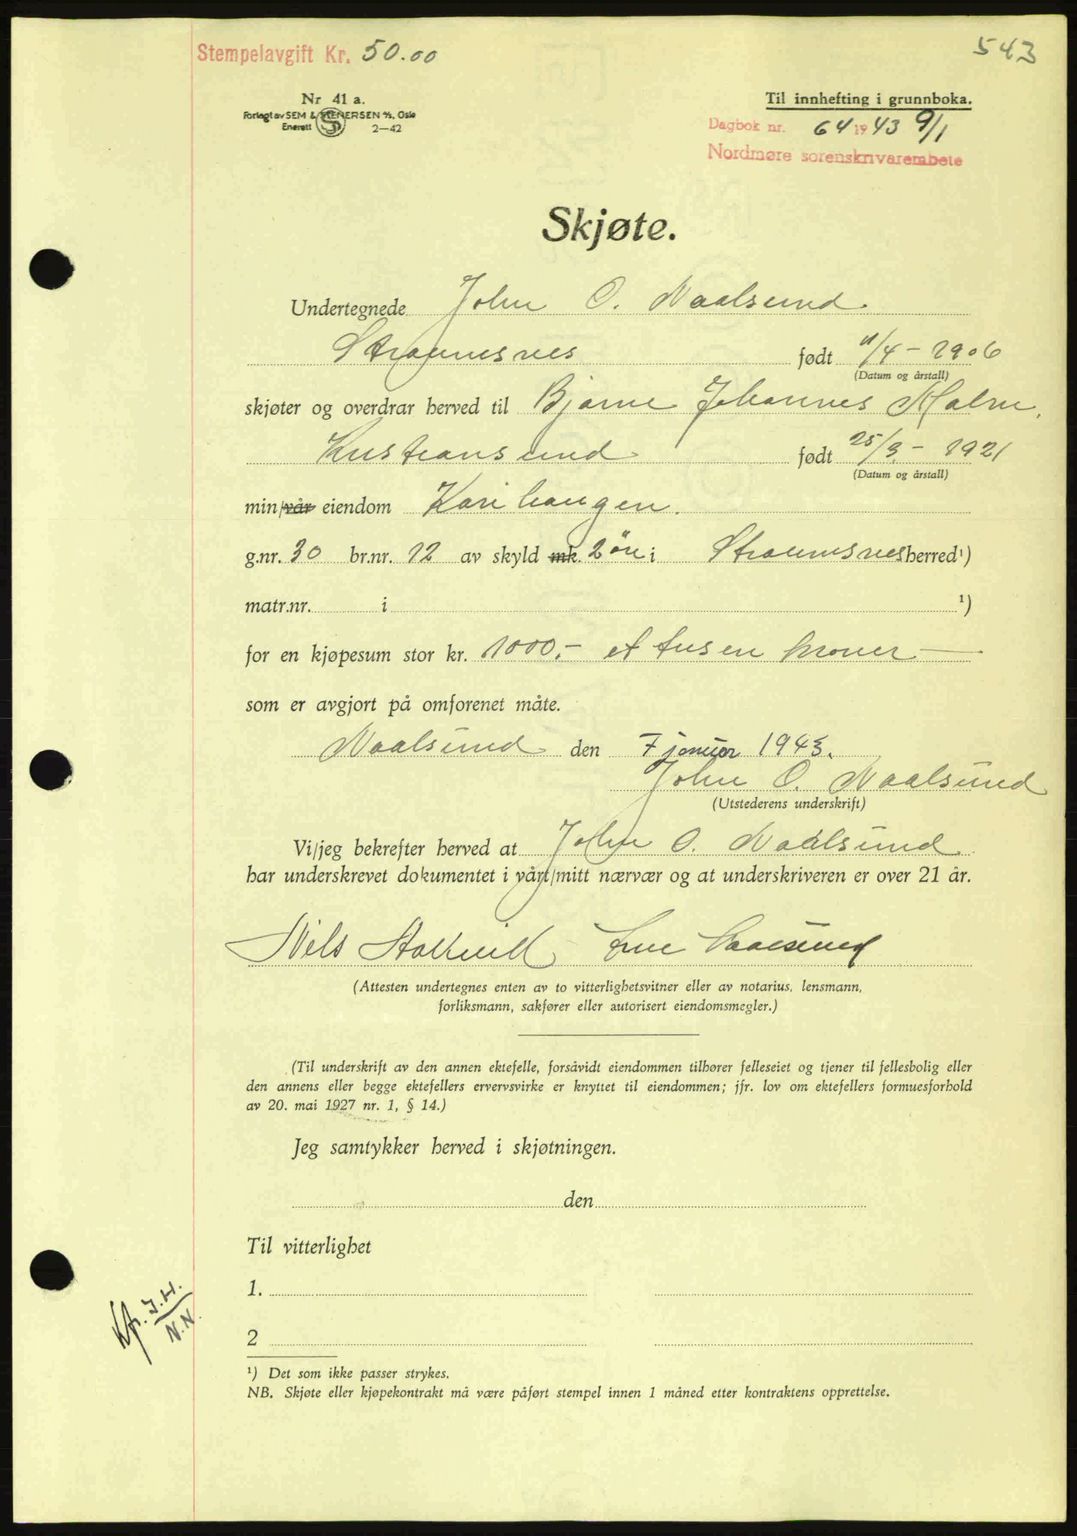 543
Stempelavgift Kr. 50.00
Nr 41 a.
Forlagt av SEM & STENERSEN A/S, Oslo
Enerett 2—42
Til innhefting i grunnboka.
Dagbok nr. 64 1943 9/1
Nordmøre sorenskrivarembete
Skjøte.
Undertegnede John O. Naalsund
Straumsnes født 11/4 - 1906
(Datum og årstall)
skjøter og overdrar herved til Bjarne Johannes Malm,
Kristiansund født 25/3 - 1921
(Datum og årstall)
min/vår eiendom Karihaugen.
g.nr. 30 br.nr. 12 av skyld mk. 2 øre i Straumsnes herred¹)
matr.nr. i ¹)
for en kjøpesum stor kr. 1000,- et tusen kroner —
som er avgjort på omforenet måte.
Naalsund den 7 januar 1943.
John O. Naalsund
(Utstederens underskrift)
Vi/jeg bekrefter herved at John O. Naalsund
har underskrevet dokumentet i vårt/mitt nærvær og at underskriveren er over 21 år.
Nils Naalsund
(Attesten undertegnes enten av to vitterlighetsvitner eller av notarius, lensmann,
forliksmann, sakfører eller autorisert eiendomsmegler.)
(Til underskrift av den annen ektefelle, forsåvidt eiendommen tilhører felleseiet og tjener til fellesbolig eller
den annens eller begge ektefellers ervervsvirke er knyttet til eiendommen; jfr. lov om ektefellers formuesforhold
av 20. mai 1927 nr. 1, § 14.)
Jeg samtykker herved i skjøtningen.
den
Til vitterlighet
1.
2
Kp. J.H.
N.N.
¹) Det som ikke passer strykes.
NB. Skjøte eller kjøpekontrakt må være påført stempel innen 1 måned etter kontraktens opprettelse.